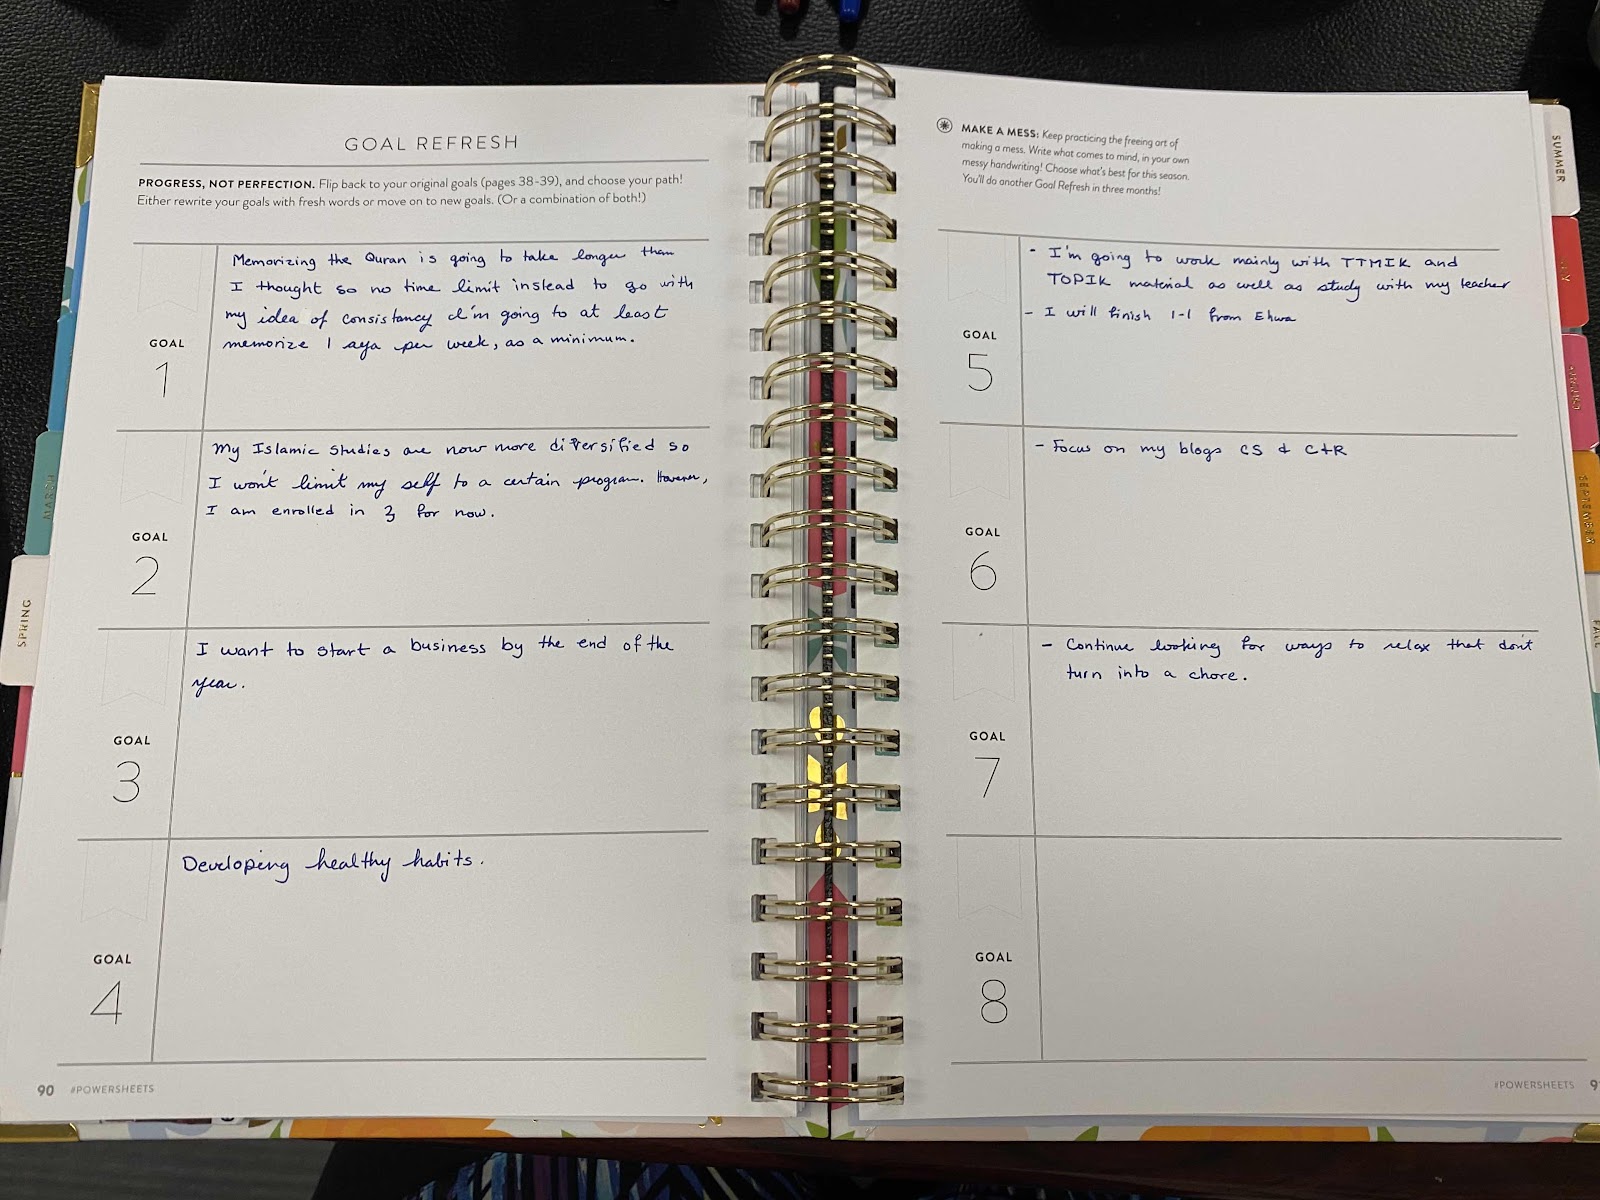 GOAL REFRESH
PROGRESS, NOT PERFECTION. Flip back to your original goals (pages 38-39), and choose your path!
Either rewrite your goals with fresh words or move on to new goals. (Or a combination of both!)
GOAL
1
Memorizing the Quran is going to take longer than
I thought so no time limit instead to go with
my idea of consistancy I'm going to at least
memorize 1 aya per week, as a minimum.
GOAL
2
My Islamic Studies are now more diversified so
I won't limit my self to a certain program. However,
I am enrolled in 3 for now.
GOAL
3
I want to start a business by the end of the
year.
GOAL
4
Developing healthy habits.
90 #POWERSHEETS
MARCH
SPRING
MAKE A MESS: Keep practicing the freeing art of
making a mess. Write what comes to mind, in your own
messy handwriting! Choose what's best for this season.
You'll do another Goal Refresh in three months!
GOAL
5
- I'm going to work mainly with TTMIK and
TOPIK material as well as study with my teacher
- I will finish 1-1 from Ehwa
GOAL
6
- Focus on my blogs CS & C+R
GOAL
7
- Continue looking for ways to relax that don't
turn into a chore.
GOAL
8
#POWERSHEETS
SUMMER
SEPTEMBER